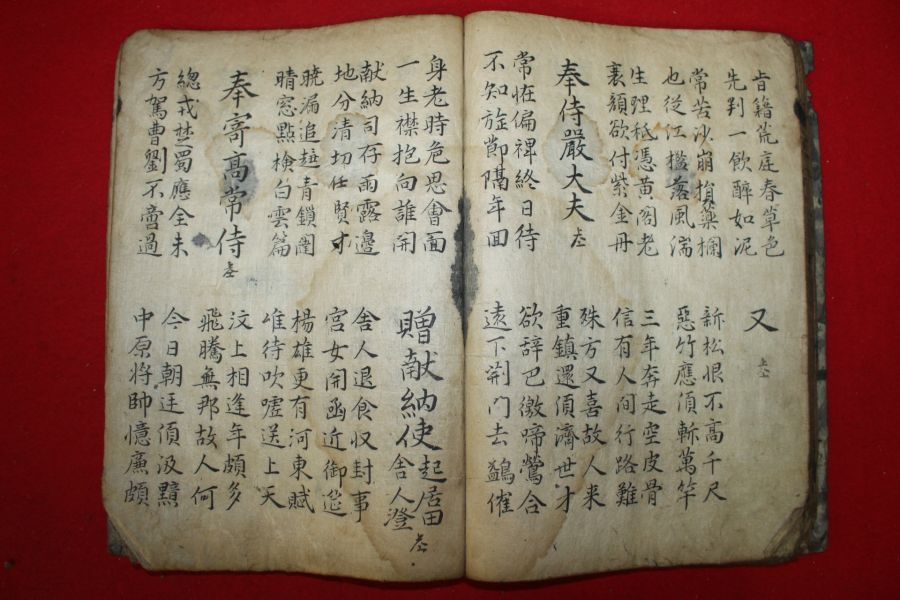 肯籍荒庭春草色
先判一飲醉如泥
又
常苦沙崩損藥欄
也從江檻落風湍
新松恨不高千尺
惡竹應須斬萬竿
生理秪憑黃閣老
裏顔欲付紫金丹
三年奔走空皮骨
信有人间行路難
奉侍嚴大夫
殊方又喜故人来
重鎮還須濟世才
常恠偏裨終日待
不知旋節隔年回
欲辞巴徼啼鶯合
遠下荆门去鷁催
身老時危思會面
一生襟抱向誰開
贈献納使起居田舍人澄
献納司存雨露邊
地分清切任賢才
舍人退食収封事
宮女開函近御筵
曉漏追趍青鎖闥
晴窓點檢白雲篇
楊雄更有河東賦
唯待吹噓送上天
奉寄高常侍
汶上相逢年頗多
飛騰無那故人何
總戎楚蜀應全未
方駕曹劉不啻過
今日朝廷須汲黯
中原將帥憶廉頗